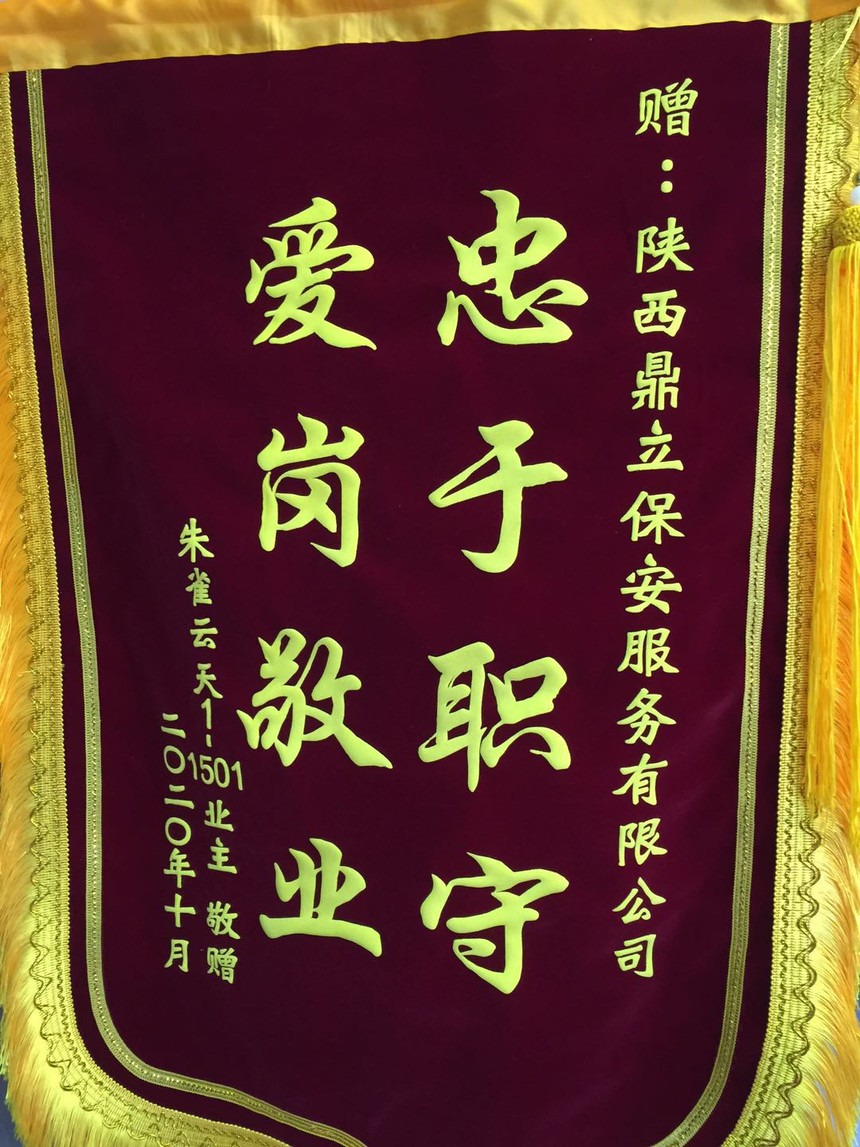 赠：陕西鼎立保安服务有限公司
忠于职守
爱岗敬业
朱雀云天1-1501业主 敬赠
二〇二〇年十月